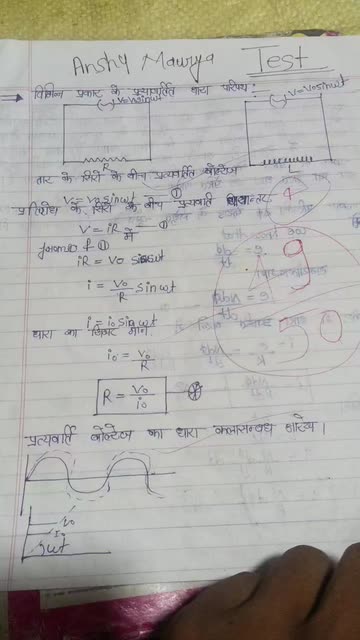 Anshy Mawrya Test
→ विभिन्न प्रकार के प्रत्यावर्तित धारा परिपथ :
V=V₀sinωt
V=V₀sinωt
R
L
तार के सिरों के बीच प्रत्यवर्ति वोल्टेज
V = V₀ sinωt — ①
प्रतिरोध के सिरों के बीच प्रत्यवर्ति
V = iR में
4
9
30
iR = V₀ sinωt
i = V₀/R sinωt
i = i₀ sinωt
धारा का शिखर मान
i₀ = V₀/R
R = V₀/i₀
प्रत्यवर्ति वोल्टेज का धारा
i₀
ωt